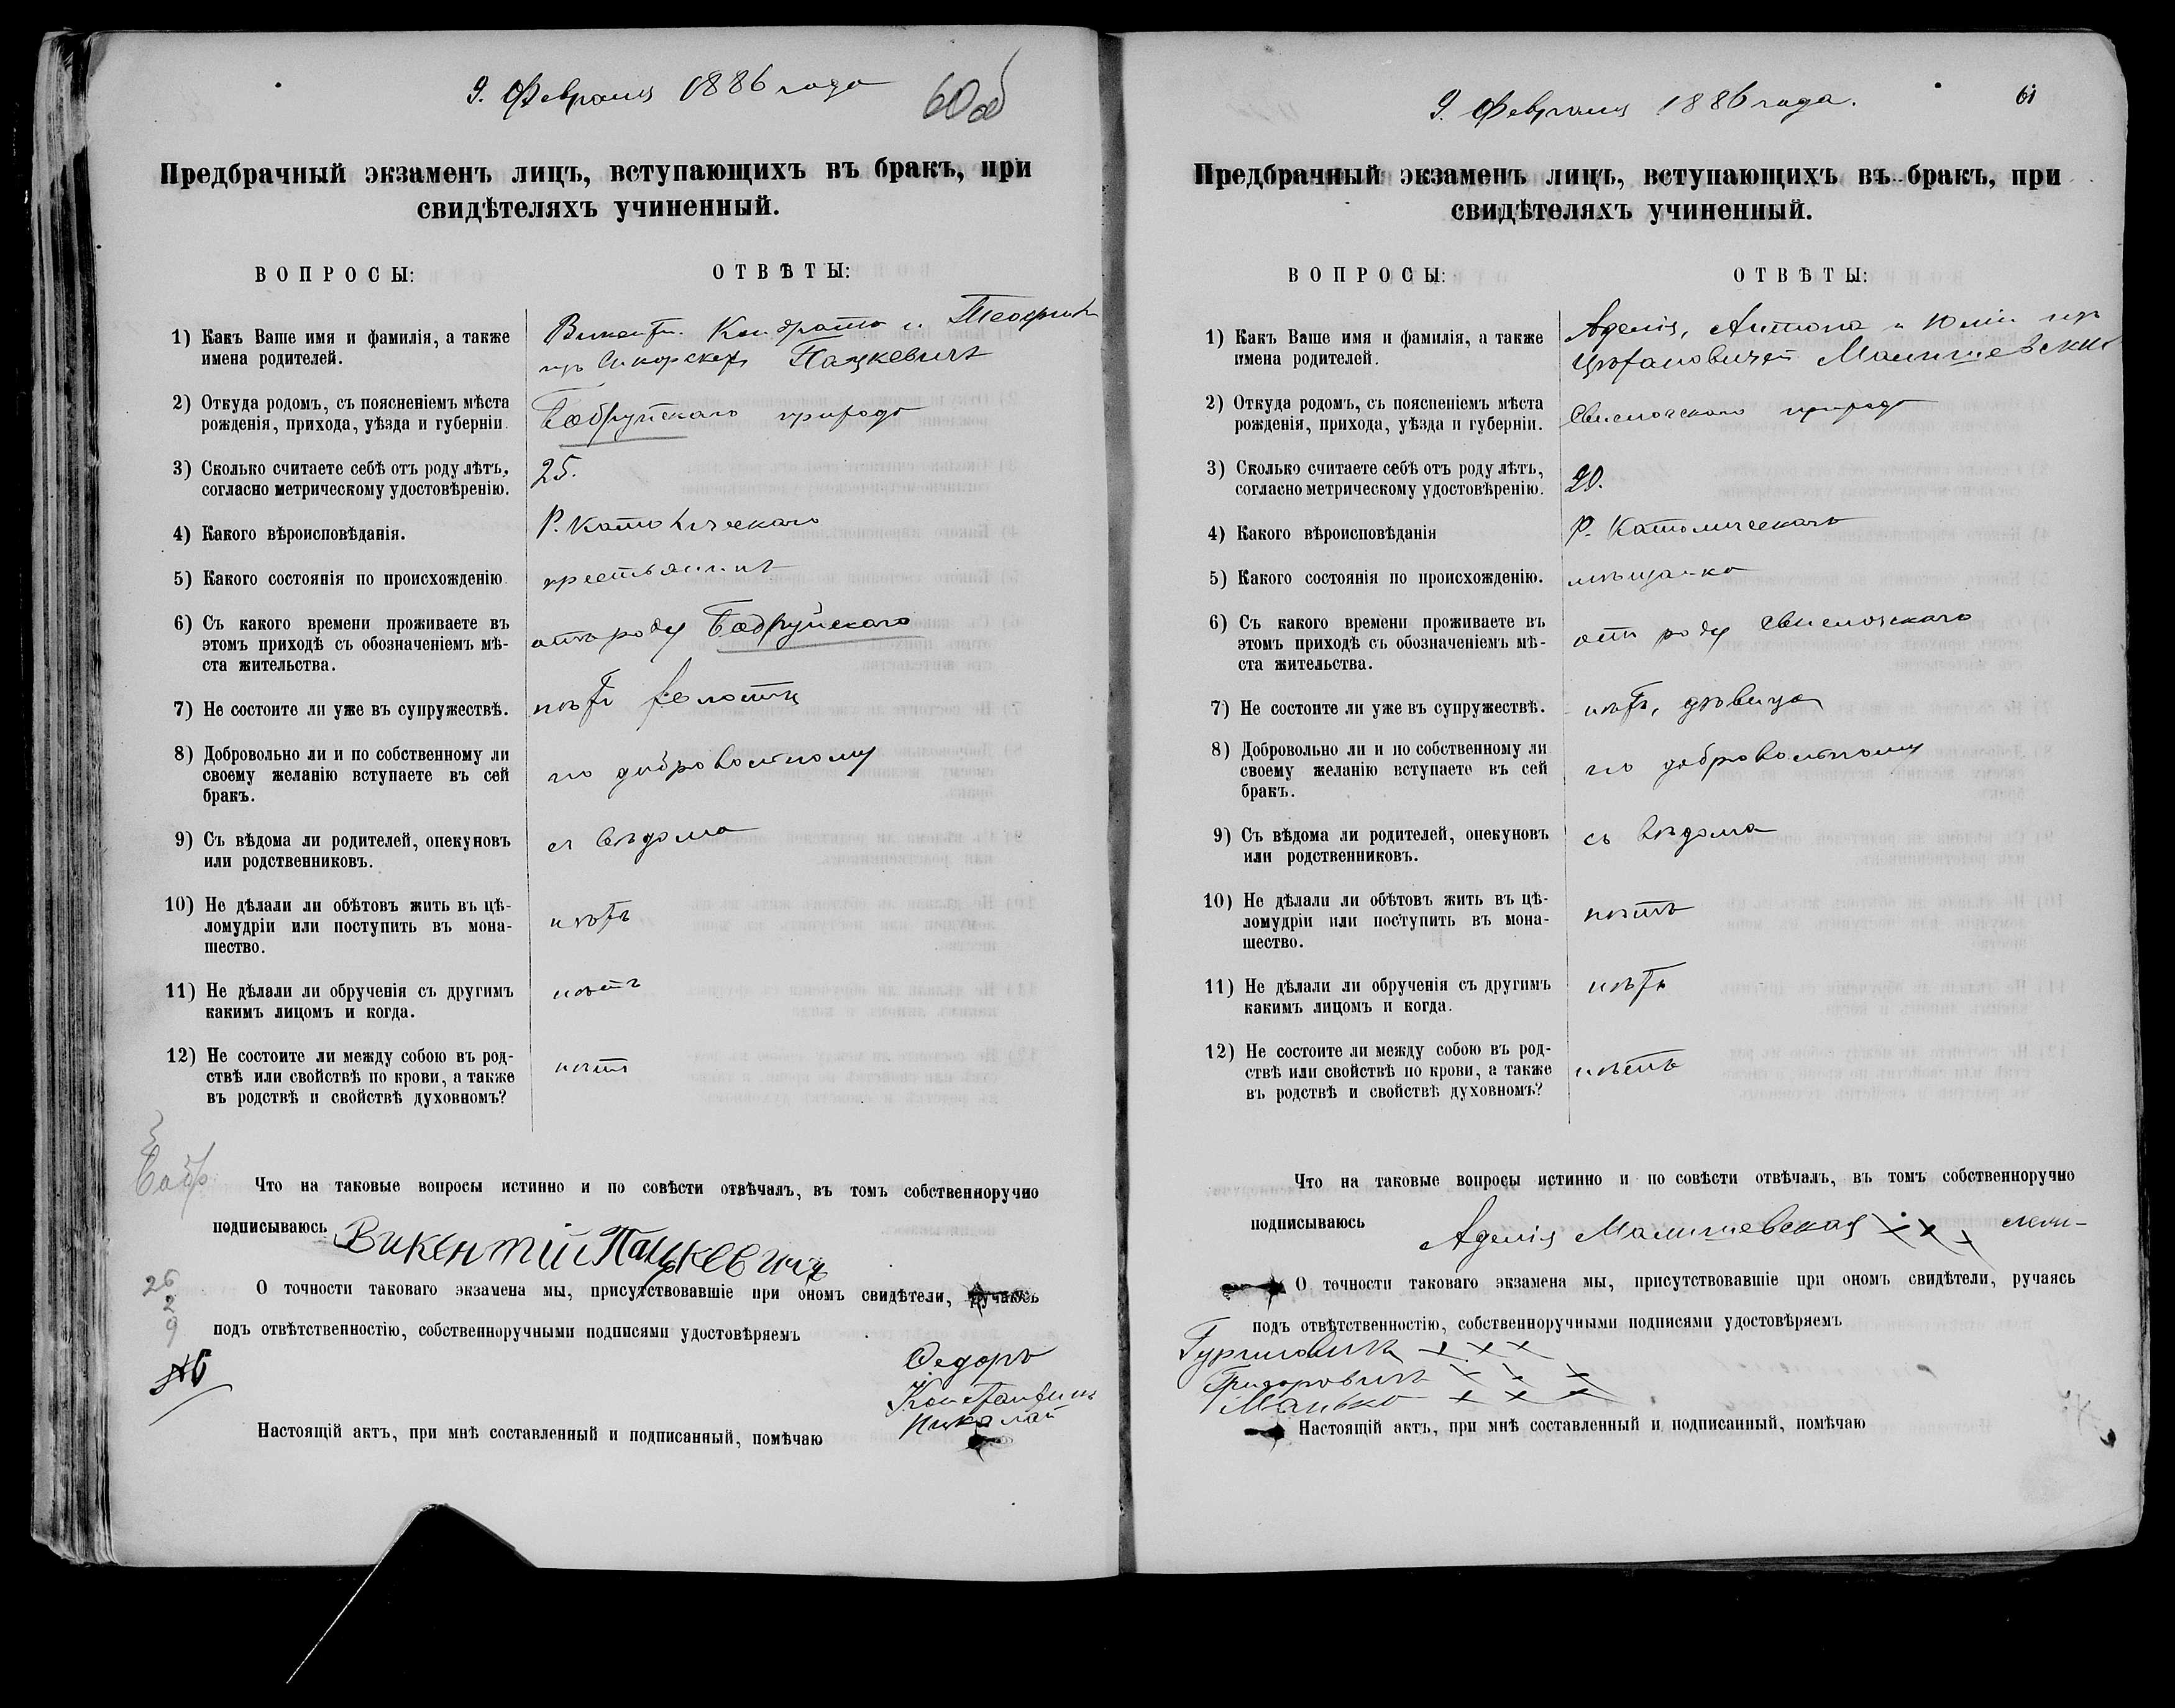 9. Февраля 1886 года
60об
Предбрачный экзаменъ лицъ, вступающихъ въ бракъ, при
свидѣтеляхъ учиненный.
ВОПРОСЫ:
ОТВѢТЫ:
1) Какъ Ваше имя и фамилія, а также
имена родителей.
Кондрата и
изъ Сикорскихъ Пацкевичъ
2) Откуда родомъ, съ поясненіемъ мѣста
рожденія, прихода, уѣзда и губерніи.
Бобруйскаго прихода
3) Сколько считаете себѣ отъ роду лѣтъ,
согласно метрическому удостовѣренію.
25.
4) Какого вѣроисповѣданія.
Р. Католическаго
5) Какого состоянія по происхожденію.
крестьянинъ
6) Съ какого времени проживаете въ
этомъ приходѣ съ обозначеніемъ мѣ-
ста жительства.
отъ роду Бобруйскаго
7) Не состоите ли уже въ супружествѣ.
нѣтъ холостъ
8) Добровольно ли и по собственному ли
своему желанію вступаете въ сей
бракъ.
по добровольному
9) Съ вѣдома ли родителей, опекуновъ
или родственниковъ.
съ вѣдома
10) Не дѣлали ли обѣтовъ жить въ цѣ-
ломудріи или поступить въ мона-
шество.
нѣтъ
11) Не дѣлали ли обрученія съ другимъ
какимъ лицомъ и когда.
нѣтъ
12) Не состоите ли между собою въ род-
ствѣ или свойствѣ по крови, а также
въ родствѣ и свойствѣ духовномъ?
нѣтъ
Бобр
Что на таковые вопросы истинно и по совѣсти отвѣчалъ, въ томъ собственноручно
подписываюсь Викентій Пацкевичъ
26
2
9
О точности таковаго экзамена мы, присутствовавшіе при ономъ свидѣтели, ручаясь
подъ отвѣтственностію, собственноручными подписями удостовѣряемъ
Федоръ
Константинъ
Николай
Настоящій актъ, при мнѣ составленный и подписанный, помѣчаю
9. Февраля 1886 года.
61
Предбрачный экзаменъ лицъ, вступающихъ въ бракъ, при
свидѣтеляхъ учиненный.
ВОПРОСЫ:
ОТВѢТЫ:
1) Какъ Ваше имя и фамилія, а также
имена родителей.
Аделія, Антона и Юліи изъ
Малишевскихъ
2) Откуда родомъ, съ поясненіемъ мѣста
рожденія, прихода, уѣзда и губерніи.
Свислочскаго прихода
3) Сколько считаете себѣ отъ роду лѣтъ,
согласно метрическому удостовѣренію.
20.
4) Какого вѣроисповѣданія
Р. Католическаго
5) Какого состоянія по происхожденію.
мѣщанка
6) Съ какого времени проживаете въ
этомъ приходѣ съ обозначеніемъ мѣ-
ста жительства.
отъ роду Свислочскаго
7) Не состоите ли уже въ супружествѣ.
нѣтъ, дѣвица
8) Добровольно ли и по собственному ли
своему желанію вступаете въ сей
бракъ.
по добровольному
9) Съ вѣдома ли родителей, опекуновъ
или родственниковъ.
съ вѣдома
10) Не дѣлали ли обѣтовъ жить въ цѣ-
ломудріи или поступить въ мона-
шество.
нѣтъ
11) Не дѣлали ли обрученія съ другимъ
какимъ лицомъ и когда.
нѣтъ
12) Не состоите ли между собою въ род-
ствѣ или свойствѣ по крови, а также
въ родствѣ и свойствѣ духовномъ?
нѣтъ
Что на таковые вопросы истинно и по совѣсти отвѣчалъ, въ томъ собственноручно
подписываюсь Аделія Малишевская х х х
О точности таковаго экзамена мы, присутствовавшіе при ономъ свидѣтели, ручаясь
подъ отвѣтственностію, собственноручными подписями удостовѣряемъ
х х х
х х х
Манько х х х
Настоящій актъ, при мнѣ составленный и подписанный, помѣчаю